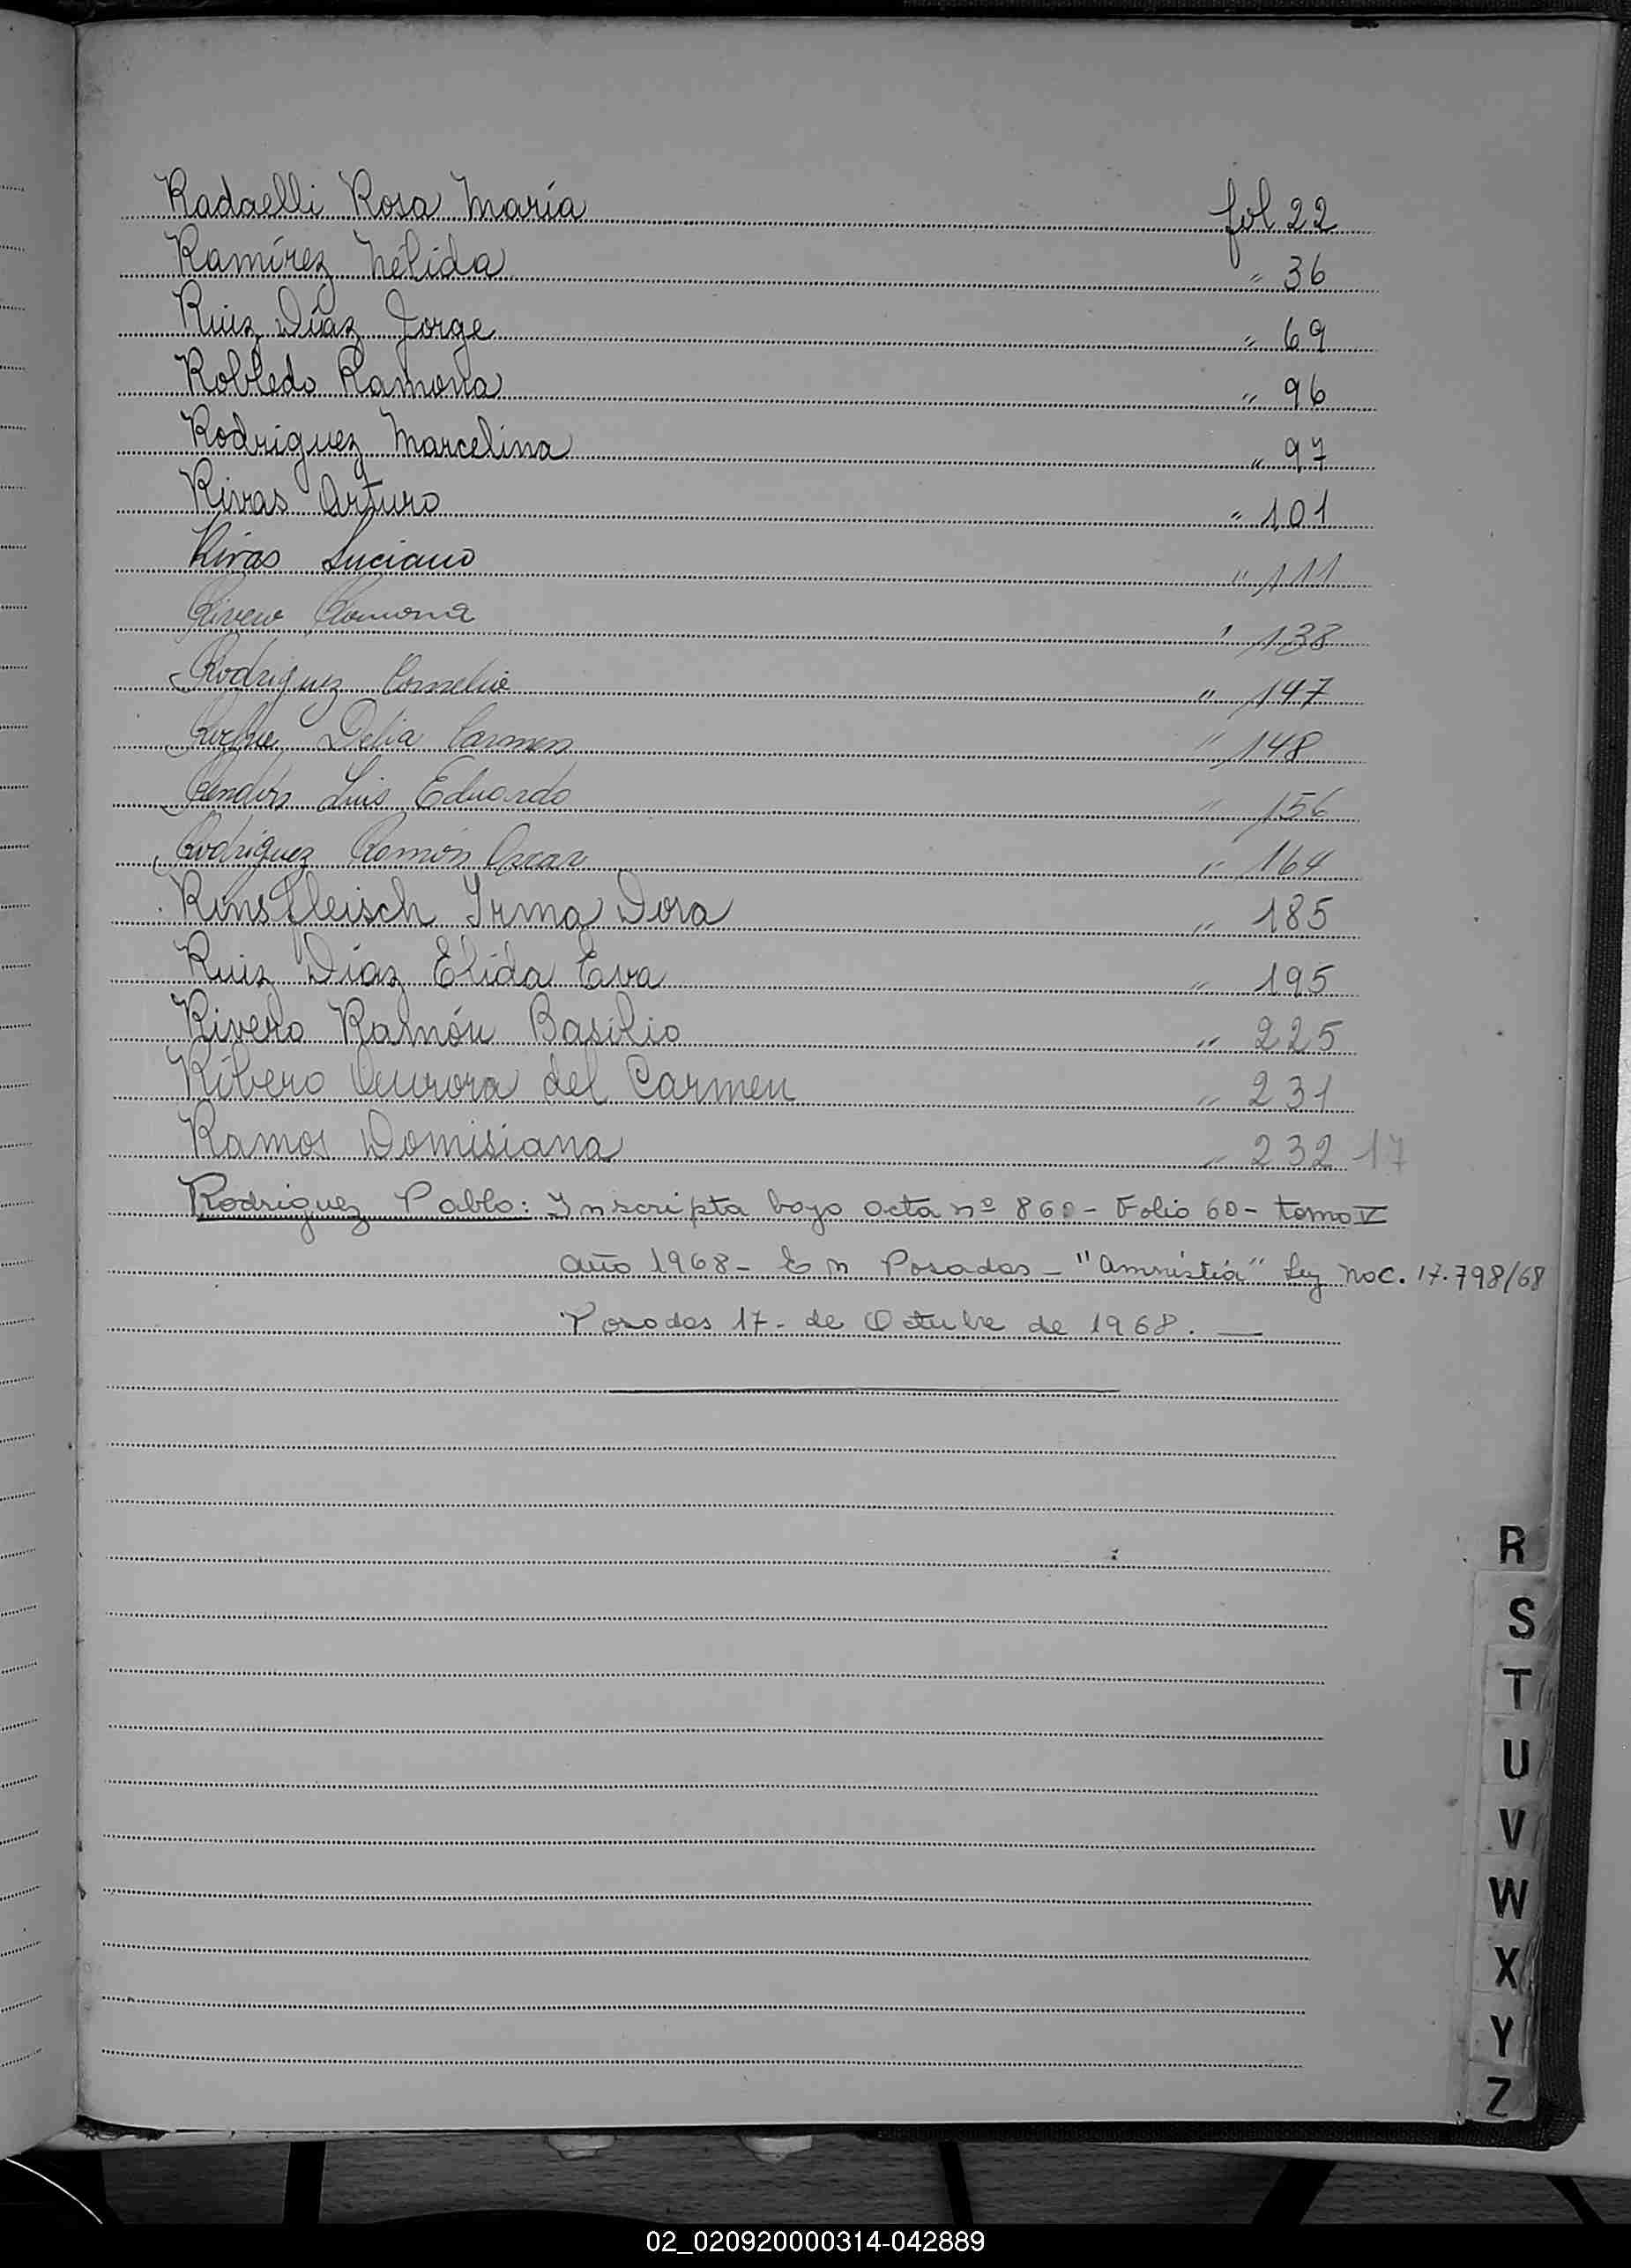 Radaelli Rosa María fol 22
Ramírez Nélida " 36
Ruiz Díaz Jorge " 69
Robledo Ramona " 96
Rodriguez Marcelina " 97
Rivas Arturo " 101
Rivas Luciano " 111
Ramona " 138
Rodriguez Cornelio " 147
Delia Carmen " 148
Luis Eduardo " 156
Rodriguez Ramón Oscar " 164
Rinsfleisch Irma Dora " 185
Ruiz Díaz Elida Eva " 195
Rivero Ramón Basilio " 225
Ribero Aurora del Carmen " 231
Ramos Domisiana " 232 17
Rodriguez Pablo: Inscripta bajo acta nº 860 - Folio 60 - tomo V
año 1968 - En Posadas - "Amnistía" Ley Nac. 17.798/68
Posadas 17 - de Octubre de 1968. —
R
S
T
U
V
W
X
Y
Z
02_020920000314-042889